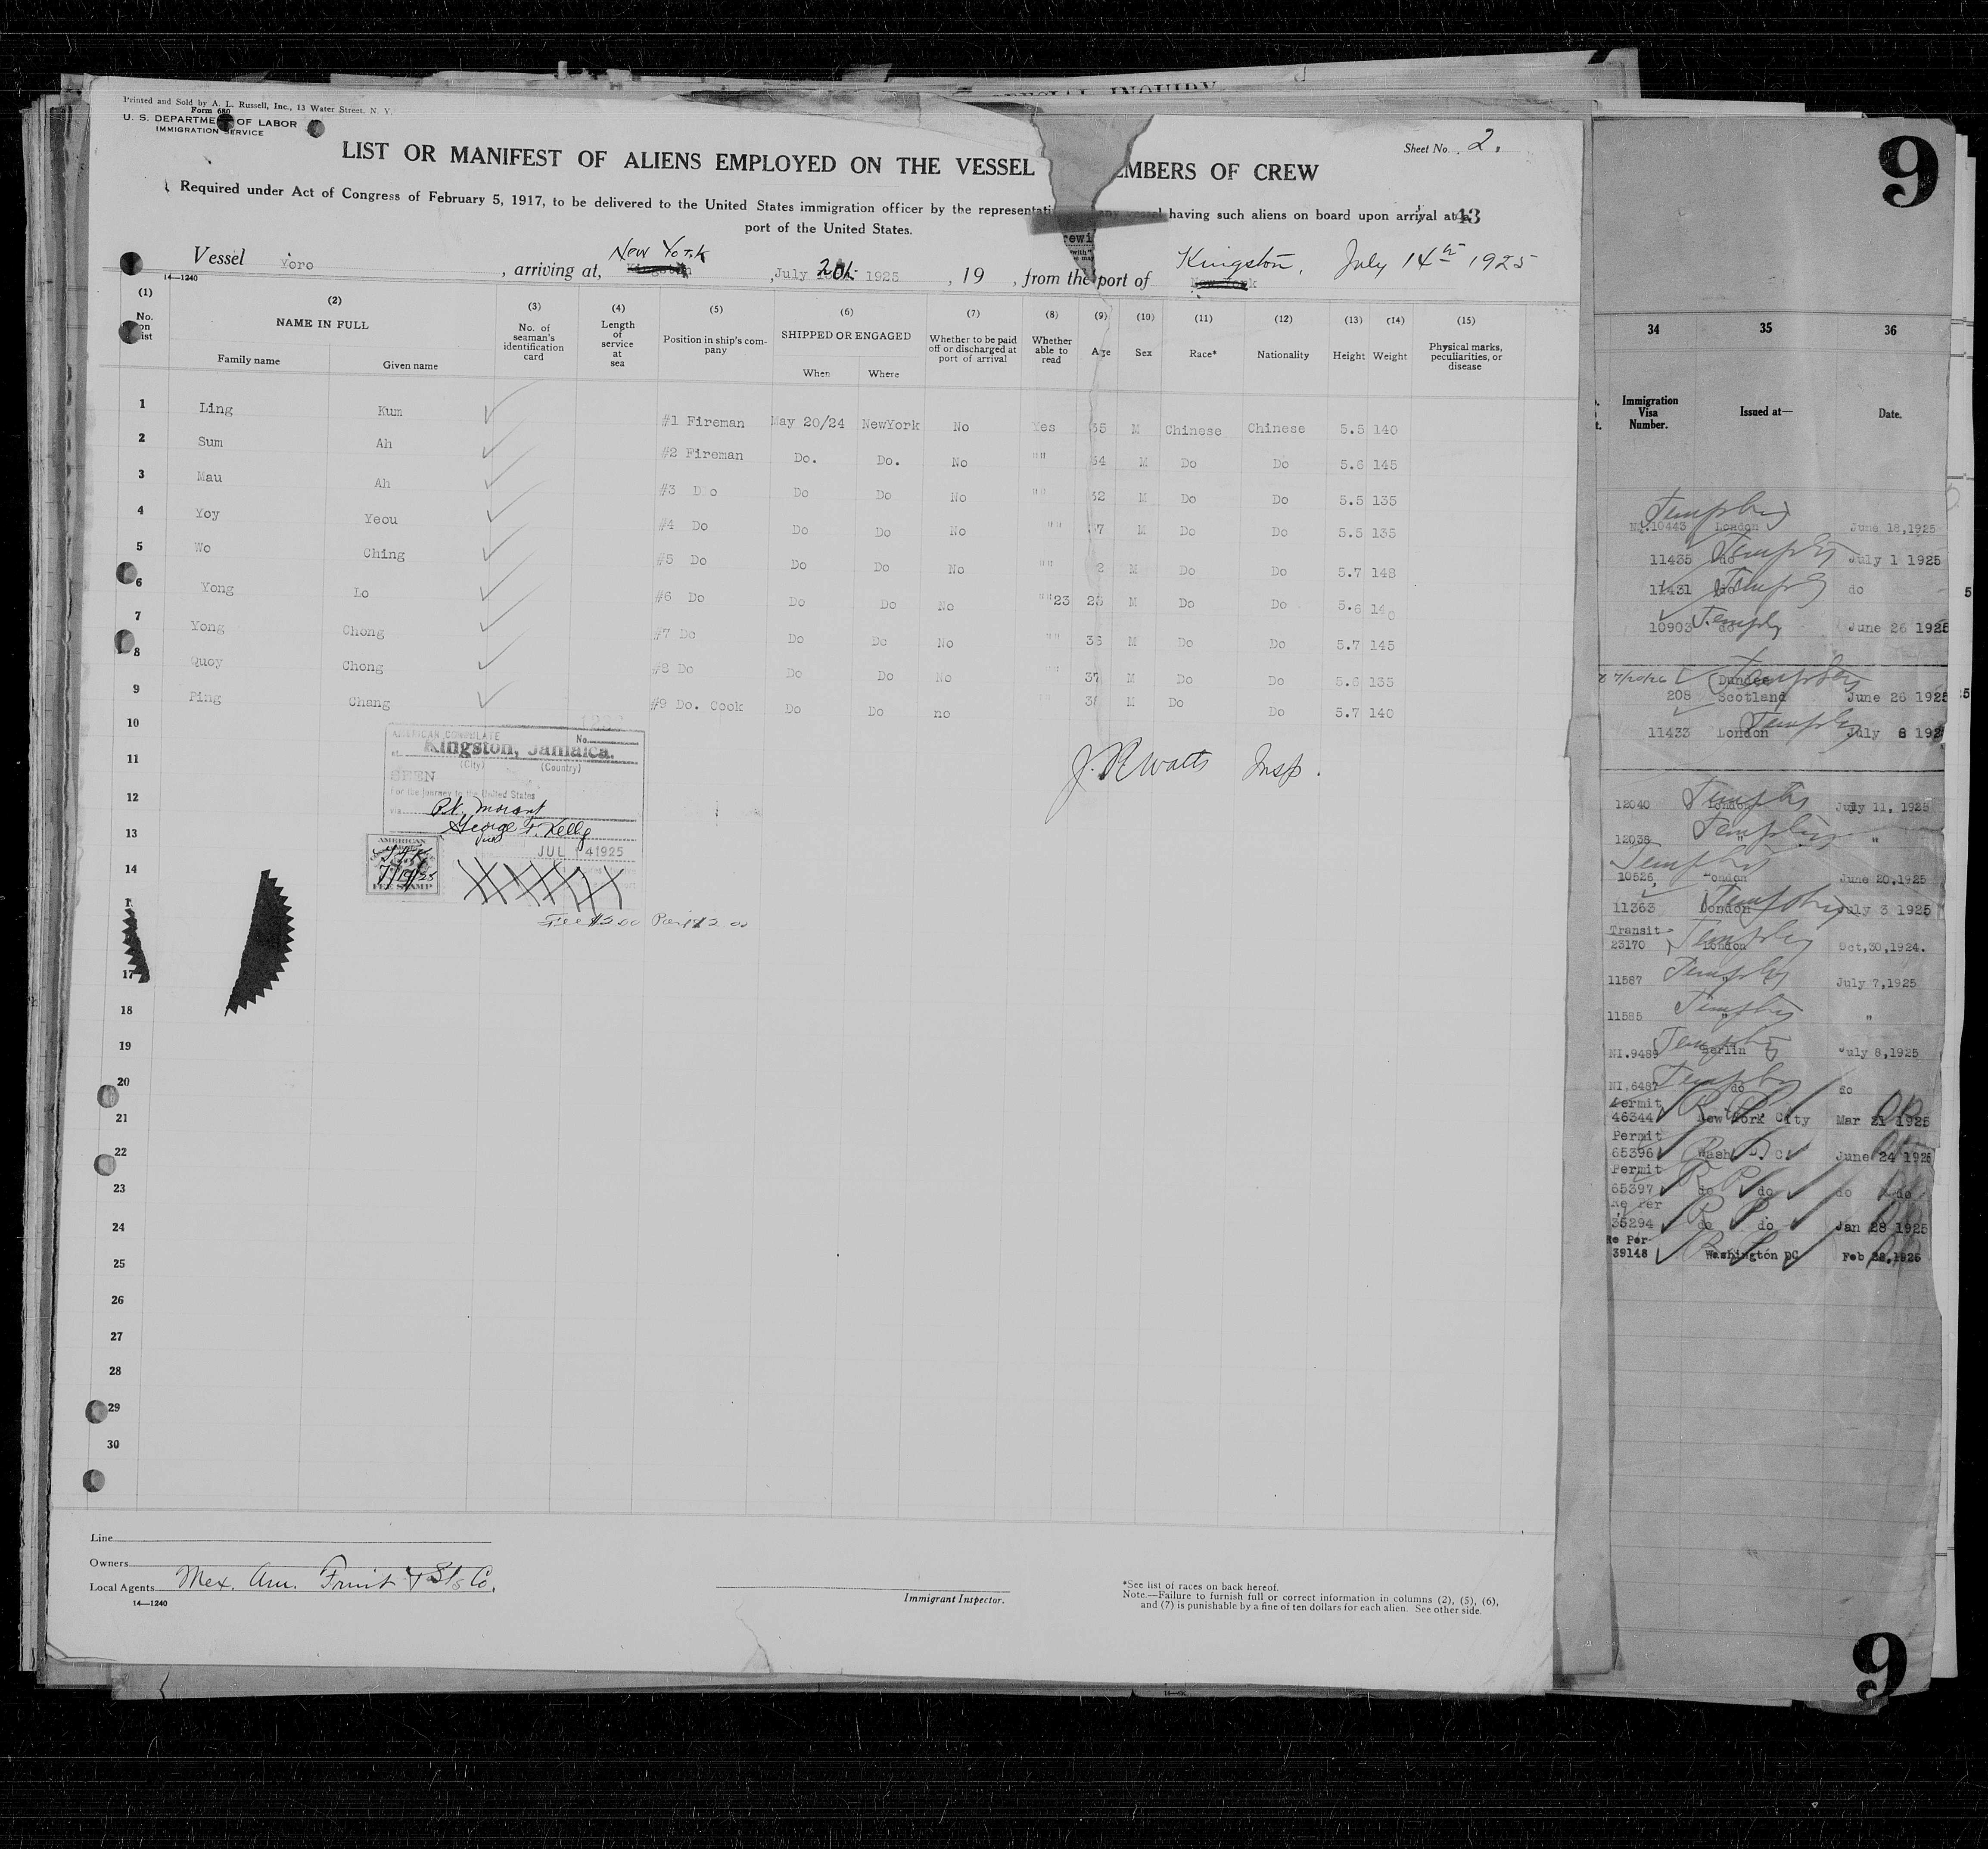 SPECIAL INQUIRY
Printed and Sold by A. L. Russell, Inc., 13 Water Street, N. Y.
Form 680
U. S. DEPARTMENT OF LABOR
IMMIGRATION SERVICE
Sheet No. 2.
9
LIST OR MANIFEST OF ALIENS EMPLOYED ON THE VESSEL MEMBERS OF CREW
Required under Act of Congress of February 5, 1917, to be delivered to the United States immigration officer by the representati any vessel having such aliens on board upon arrival at a
43
port of the United States.
Vessel Yoro , arriving at, New York Kingston , July 20th 1925 , 19 , from the port of Kingston, July 14th 1925
New York
14—1240
(1) (2) (3) (4) (5) (6) (7) (8) (9) (10) (11) (12) (13) (14) (15)
No. on list NAME IN FULL No. of seaman's identification card Length of service at sea Position in ship's company SHIPPED OR ENGAGED Whether to be paid off or discharged at port of arrival Whether able to read Age Sex Race* Nationality Height Weight Physical marks, peculiarities, or disease
Family name Given name When Where
1 Ling Kum #1 Fireman May 20/24 NewYork No Yes 35 M Chinese Chinese 5.5 140
2 Sum Ah #2 Fireman Do. Do. No "" 34 M Do Do 5.6 145
3 Mau Ah #3 Do Do Do No "" 32 M Do Do 5.5 135
4 Yoy Yeou #4 Do Do Do No "" 37 M Do Do 5.5 135
5 Wo Ching #5 Do Do Do No "" 2 M Do Do 5.7 148
6 Yong Lo #6 Do Do Do No "" 23 23 M Do Do 5.6 140
7 Yong Chong #7 Do Do Do No "" 36 M Do Do 5.7 145
8 Quoy Chong #8 Do Do Do No "" 37 M Do Do 5.6 135
9 Ping Chang #9 Do. Cook Do Do no 38 M Do Do 5.7 140
10
11
12
13
14
17
18
19
20
21
22
23
24
25
26
27
28
29
30
AMERICAN CONSULATE No.
at Kingston, Jamaica.
(City) (Country)
SEEN
For the journey to the United States
via Pt. Morant
George F. Kelly
JUL 14 1925
AMERICAN
7/14/25
FEE STAMP
Fee $2.00
J. R. Watts Insp.
Line
Owners
Local Agents Mex. Am. Fruit & S/S Co.
14—1240
Immigrant Inspector.
*See list of races on back hereof.
Note.—Failure to furnish full or correct information in columns (2), (5), (6),
and (7) is punishable by a fine of ten dollars for each alien. See other side.
34 35 36
Immigration Visa Number. Issued at— Date.
No.10443 London June 18,1925
11435 do July 1 1925
11431 do do
10903 do June 26 1925
Dundee
208 Scotland June 26 1925
11433 London July 8 192
12040 London July 11, 1925
12038 " "
10526 London June 20,1925
11363 London July 3 1925
Transit
23170 London Oct,30,1924.
11587 " July 7,1925
11585 " "
NI.9489 Berlin July 8,1925
NI.6487 do do
Permit
46344 New York City Mar 21 1925
Permit
65396 Wash D. C. June 24 1925
Permit
65397 do do do do
Re Per
35294 do do Jan 28 1925
Re Per
39148 Washington DC Feb 28,1925
9